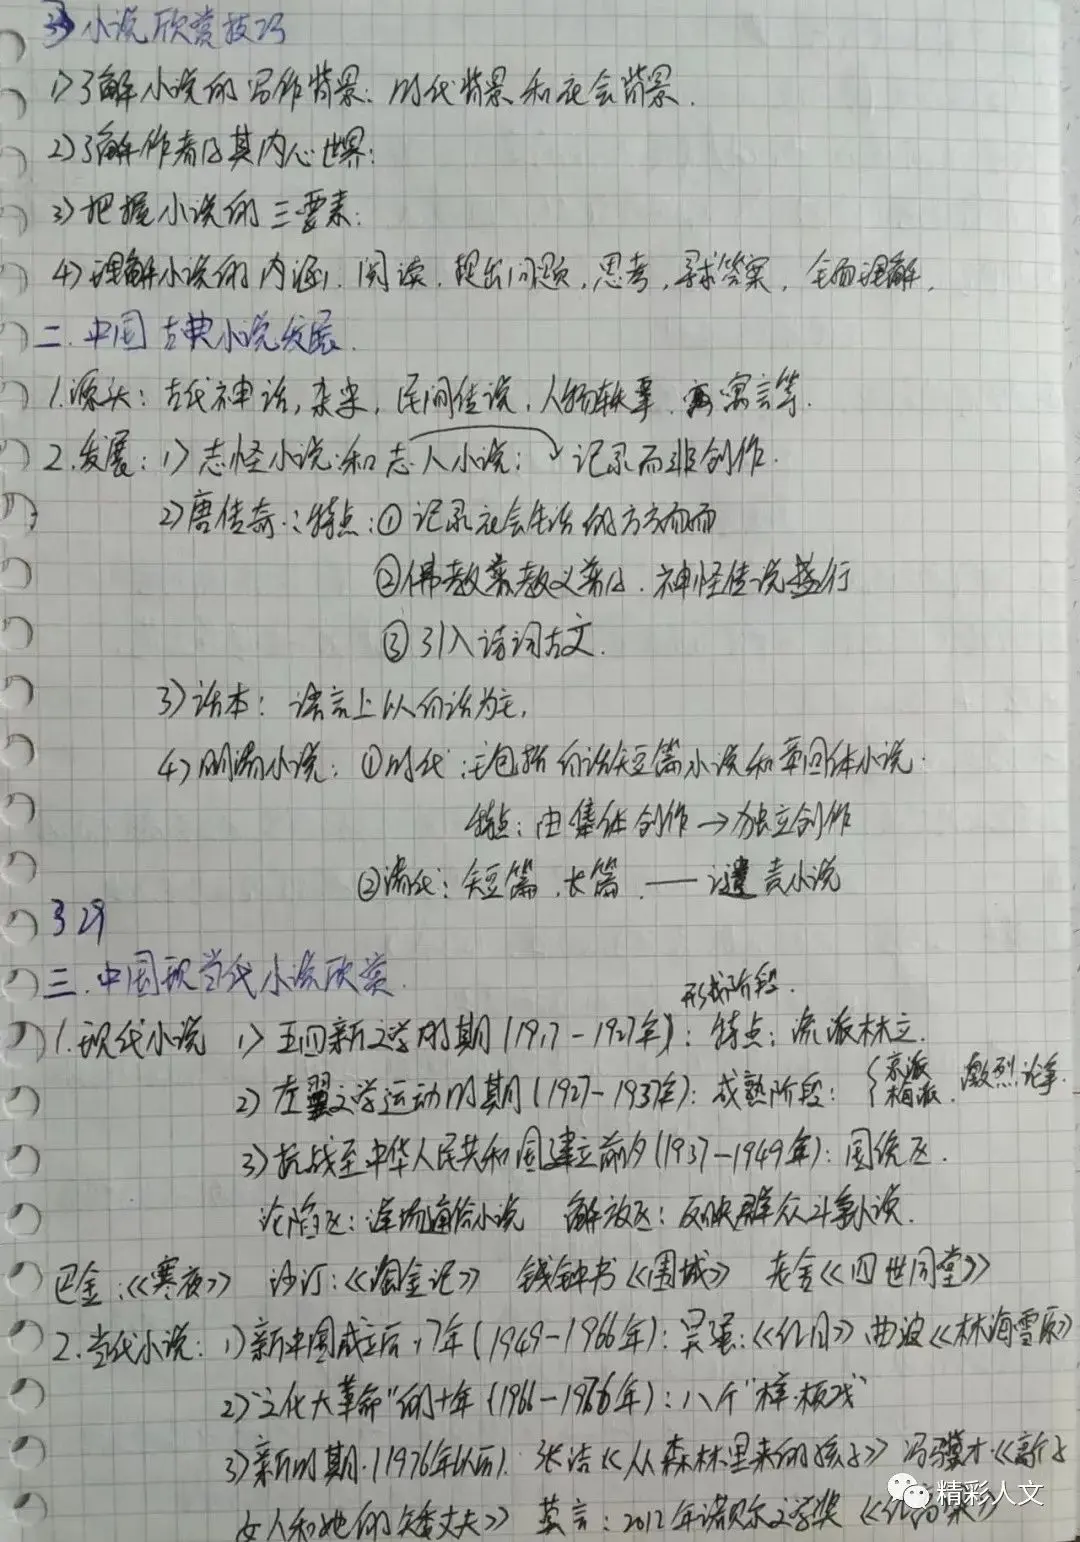 3. 小说欣赏技巧
1) 了解小说的写作背景: 时代背景和社会背景.
2) 了解作者及其内心世界:
3) 把握小说的三要素:
4) 理解小说的内涵, 阅读, 提出问题, 思考, 寻求答案, 全面理解.
二. 中国古典小说发展.
1. 源头: 古代神话, 民间传说, 人物轶事, 寓言等.
2. 发展: 1) 志怪小说和志人小说: 记录而非创作.
2) 唐传奇: 特点: ① 记录社会生活的方方面面
② 佛教教义 神怪传说盛行
③ 引入诗词古文.
3) 话本: 语言上以白话为主,
4) 明清小说: ① 明代: 主包括白话短篇小说和章回体小说.
特点: 由集体创作→独立创作
② 清代: 短篇、长篇. —— 谴责小说
3 29
三. 中国现当代小说欣赏.
形成阶段.
1. 现代小说 1) 五四新文学时期 (1917-1927年): 特点: 流派林立.
2) 左翼文学运动时期 (1927-1937年): 成熟阶段: { 京派 海派. 激烈论争
3) 抗战至中华人民共和国建立前夕 (1937-1949年): 国统区.
沦陷区: 洋场通俗小说 解放区: 反映群众斗争小说.
巴金:《寒夜》 沙汀:《淘金记》 钱钟书《围城》 老舍《四世同堂》
2. 当代小说: 1) 新中国成立后17年 (1949-1966年): 吴强:《红日》曲波《林海雪原》
2) "文化大革命"的十年 (1966-1976年): 八个"样板戏"
3) 新时期. (1976年以后). 张洁《从森林里来的孩子》 冯骥才《高个子
女人和她的矮丈夫》 莫言: 2012年诺贝尔文学奖 《红高粱》
精彩人文